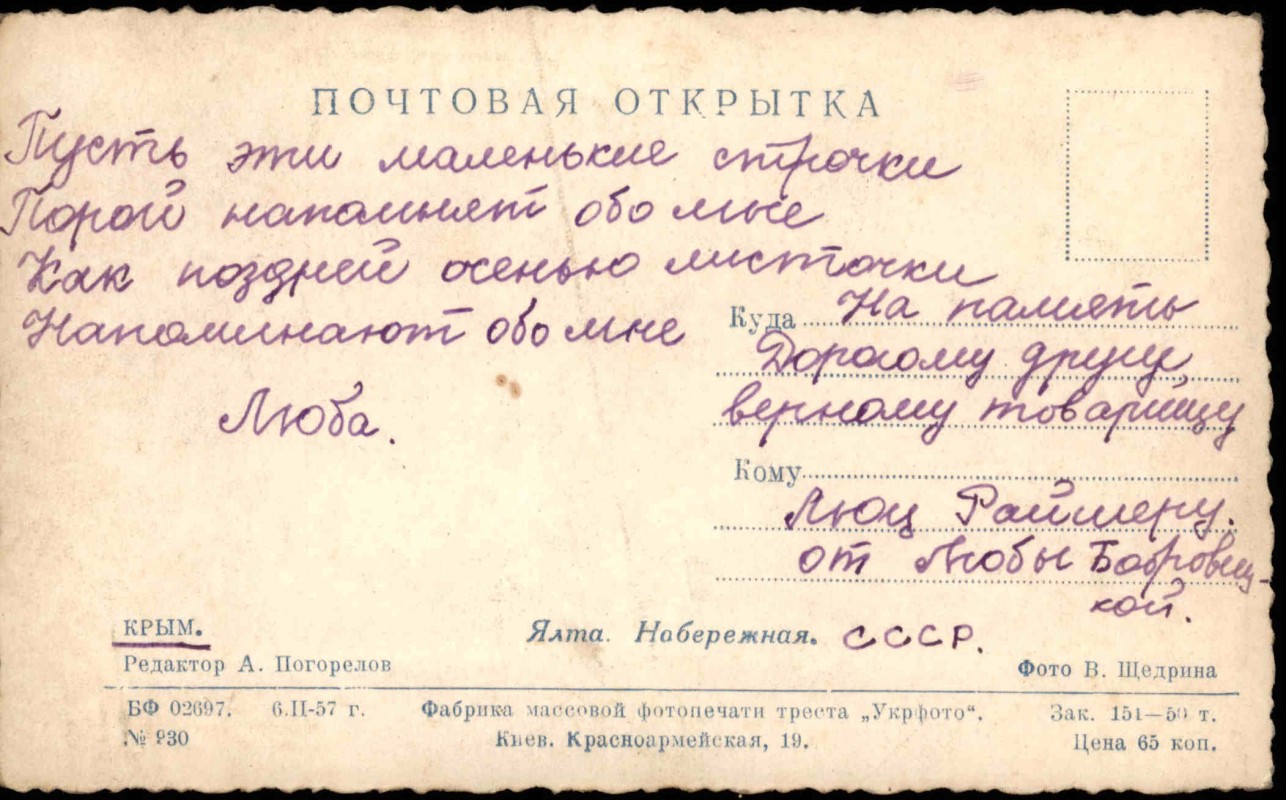 ПОЧТОВАЯ ОТКРЫТКА
Пусть эти маленькие строчки
Порой напомнят обо мне
Как поздней осенью листочки
Напоминают обо мне
Люба.
Куда На память
Дорогому другу,
верному товарищу
Кому
Люц Раймеру.
от Любы Бобровиц-
кой.
КРЫМ.
Ялта. Набережная. СССР.
Редактор А. Погорелов
Фото В. Щедрина
БФ 02697. 6.II-57 г. Фабрика массовой фотопечати треста „Укрфото“. Зак. 151—50 т.
№ 930 Киев. Красноармейская, 19. Цена 65 коп.